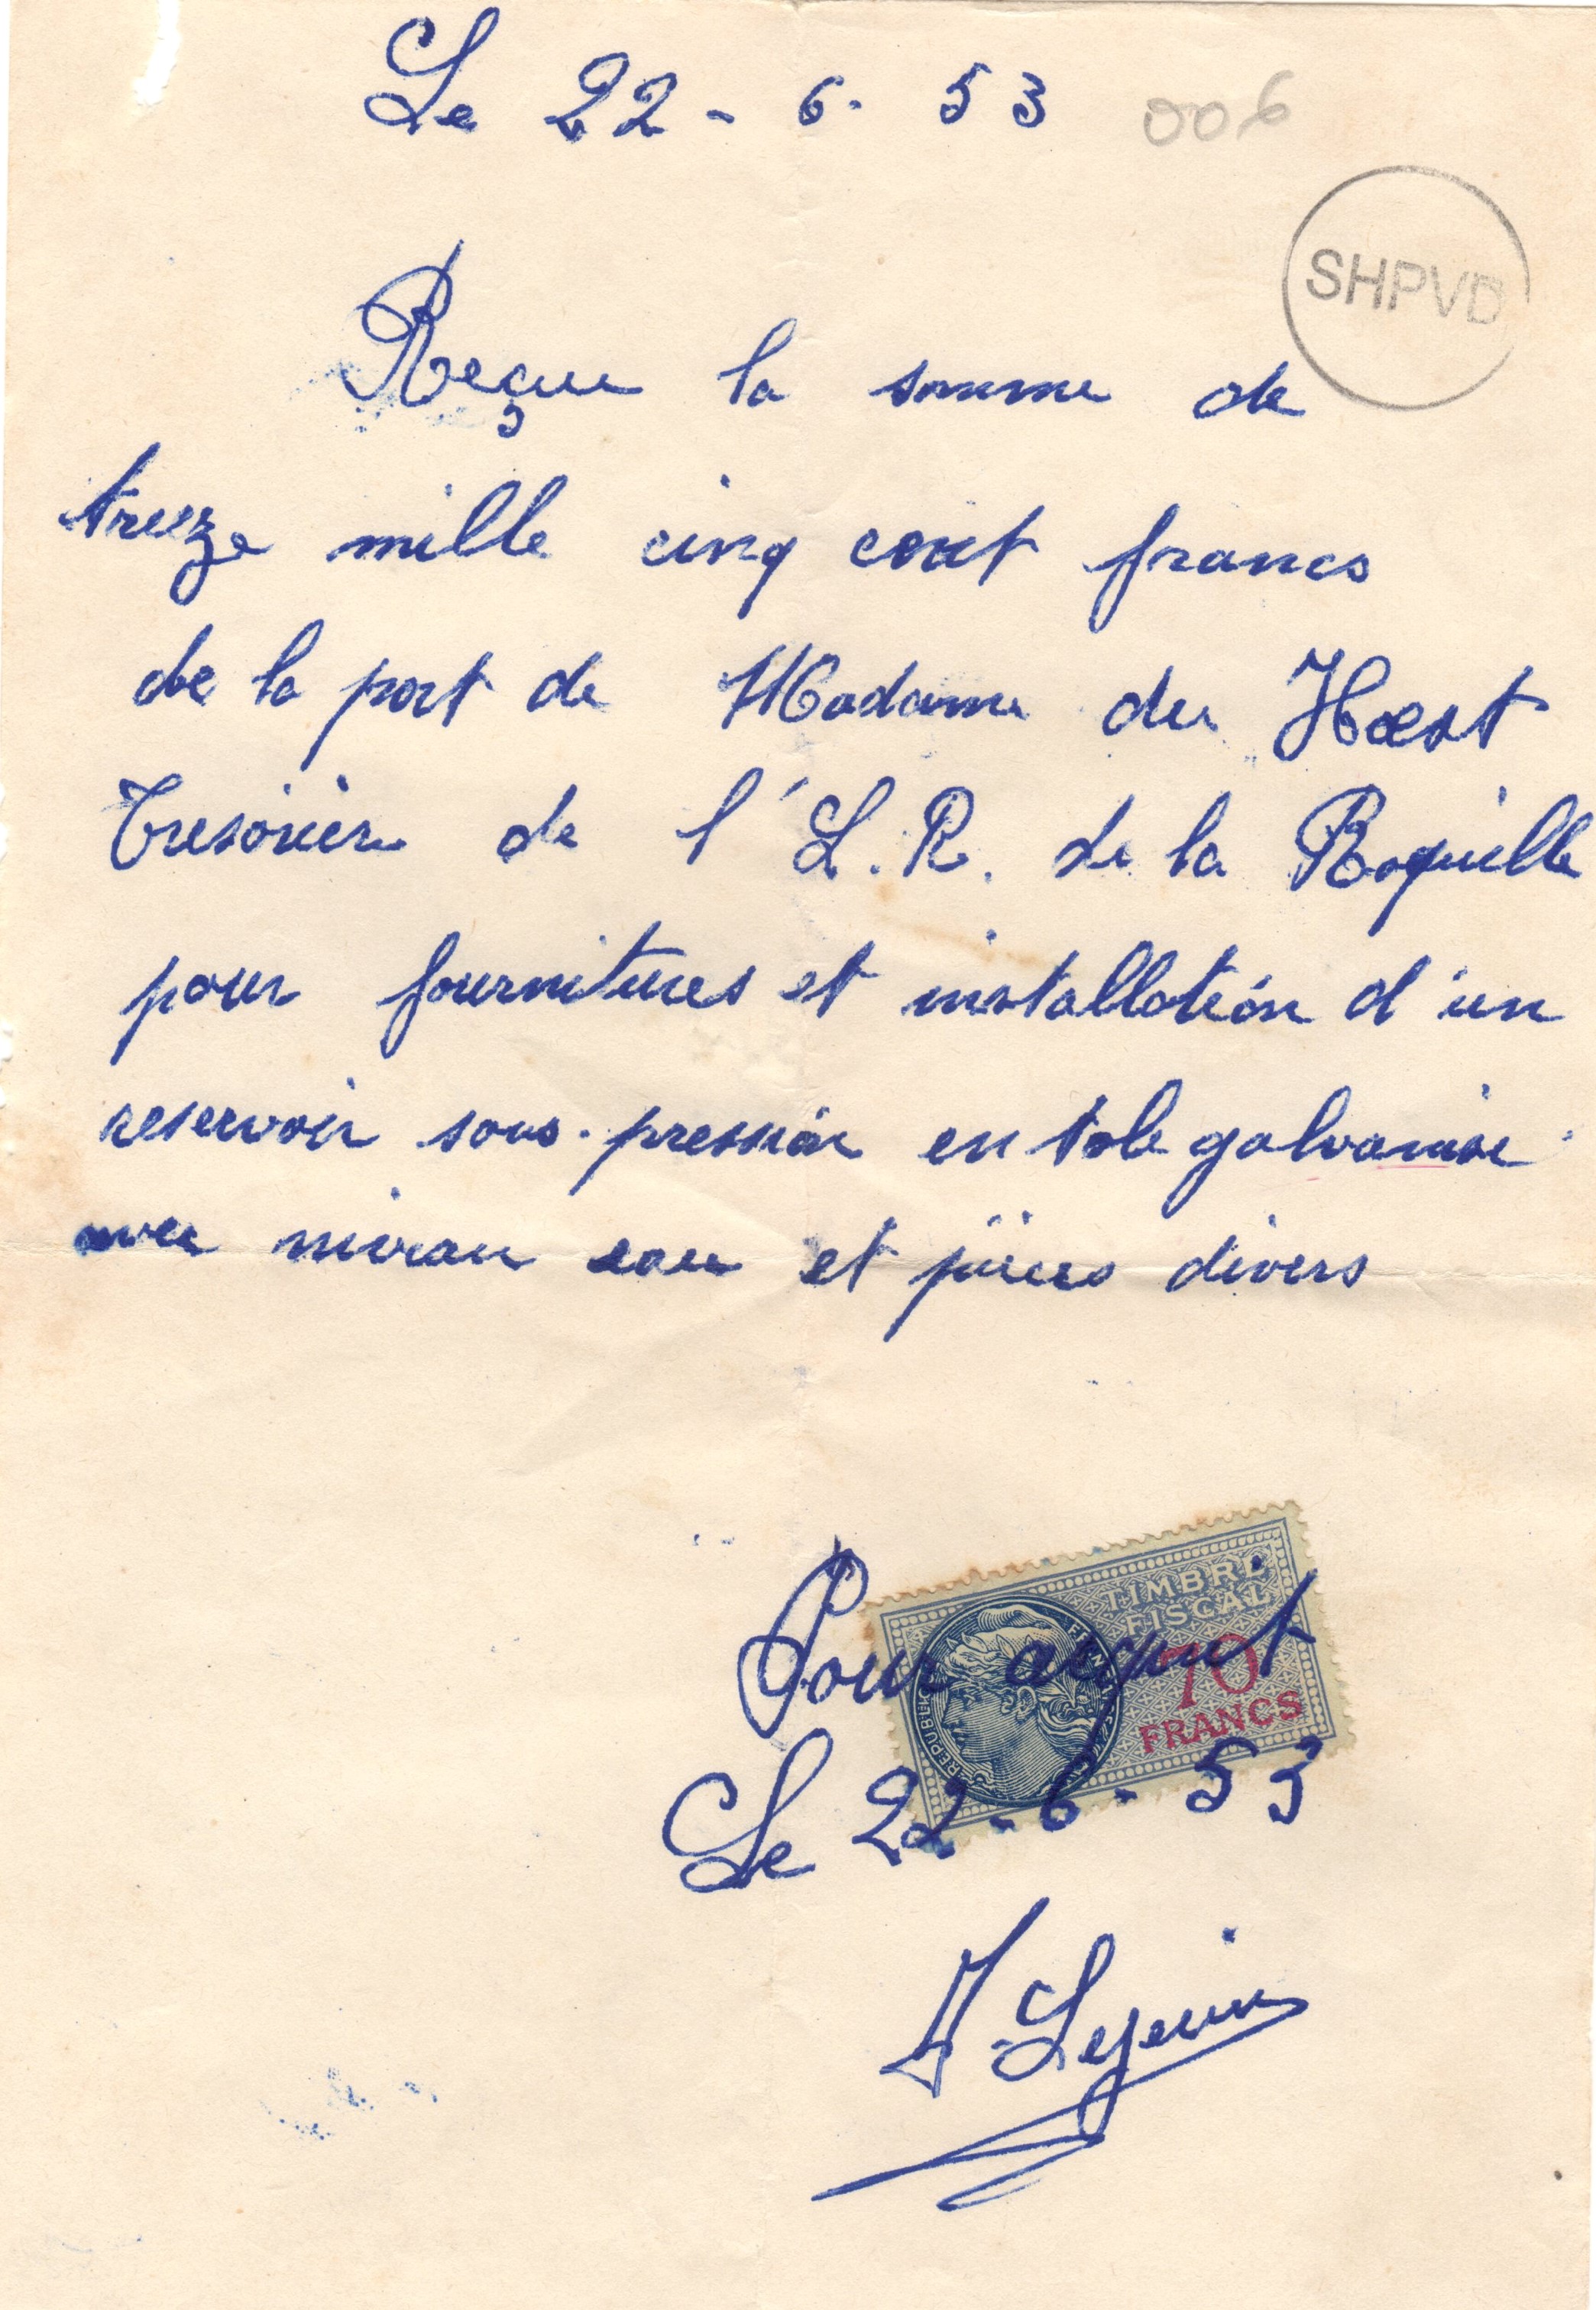 Le 22 - 6 - 53 006
SHPVD
Reçue la somme de
treize mille cinq cent francs
de la part de Madame du Hoest
Tresorier de l'L.R. de la Roquille
pour fournitures et installation d'un
reservoir sous-pression en tole galvanise
avec niveau eau et pièces divers
TIMBRE
FISCAL
70
FRANCS
Pour acquit
Le 22-6-53
Lejeune